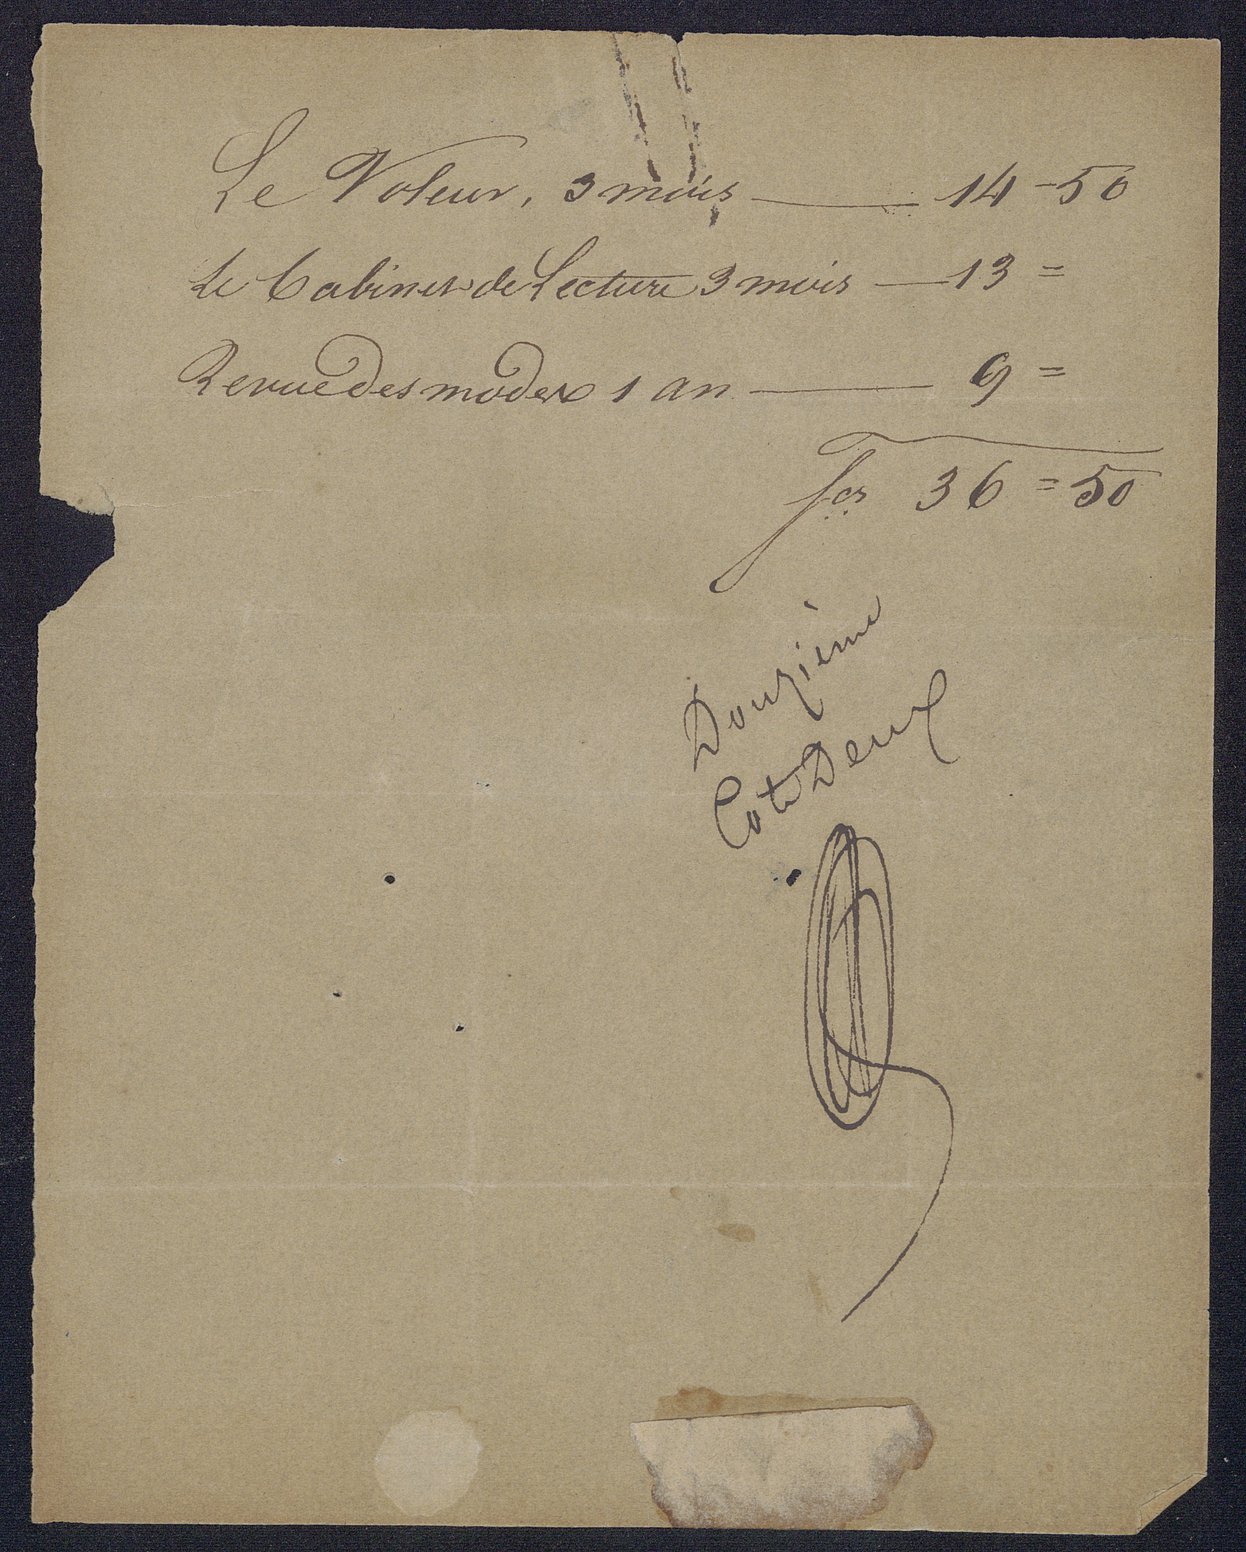 Le Voleur, 3 mois — 14 - 50
Le Cabinet de Lecture 3 mois — 13 =
Revue des modes 1 an — 9 =
fcs 36 = 50
Douzième
Cote Deux